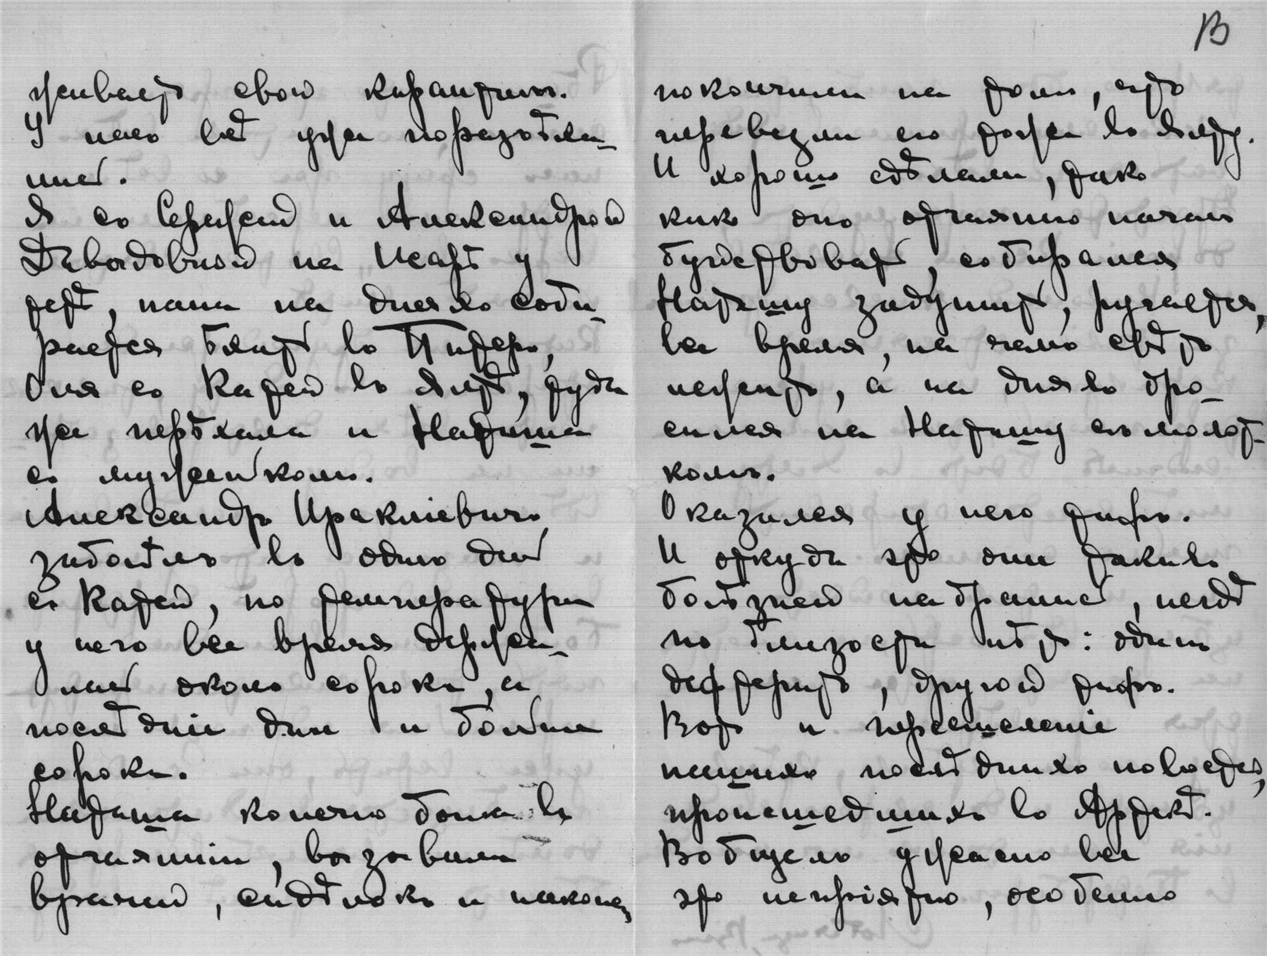 живаетъ свой карантинъ.
У насъ всѣ уже поразъѣхались.
Я съ Сергѣей и Александрой
Давыдовной на Исарѣ у
тетѣ, папа на дняхъ соби-
рается ѣхать въ Питеръ,
Оля съ Катей въ Ялтѣ, туда
же переѣхала и Наташа
съ мужемъ.
Александръ Иракліевичъ
заболѣлъ въ одинъ день
съ Катей, но температура
у него все время держа-
лась около сорока, а
послѣдніе дни и больше
сорока.
Наташа конечно была въ
отчаяніи, вызывали
врачей, сидѣлокъ и наконецъ
В
покончили на томъ, что
перевезли его тоже въ Ялту.
И хорошо сдѣлали, такъ
какъ онъ отчаянно началъ
буйствовать, собирался
Наташу задушить, ругается,
все время, на чемъ свѣтъ
стоитъ, а на дняхъ бро-
сился на Наташу съ молот-
комъ.
Оказался у него тифъ.
И откуда это они такихъ
болѣзней набрались, нигдѣ
по близости нѣтъ: одинъ
дифтеритъ, другой тифъ.
Вотъ и перечисленіе
нашихъ послѣднихъ новостей,
происшедшихъ въ Артекѣ.
Вобщемъ ужасно все
это непріятно, особенно